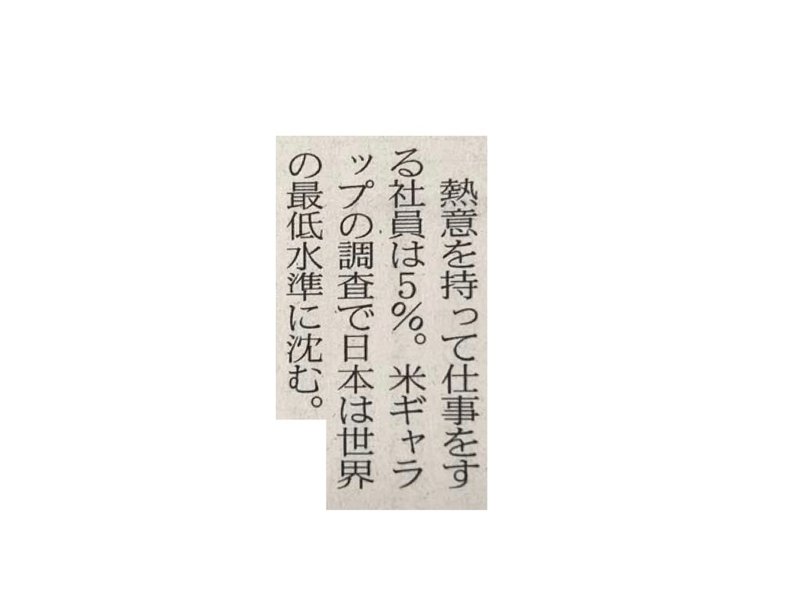 熱意を持って仕事をす
る社員は5%。米ギャラ
ップの調査で日本は世界
の最低水準に沈む。